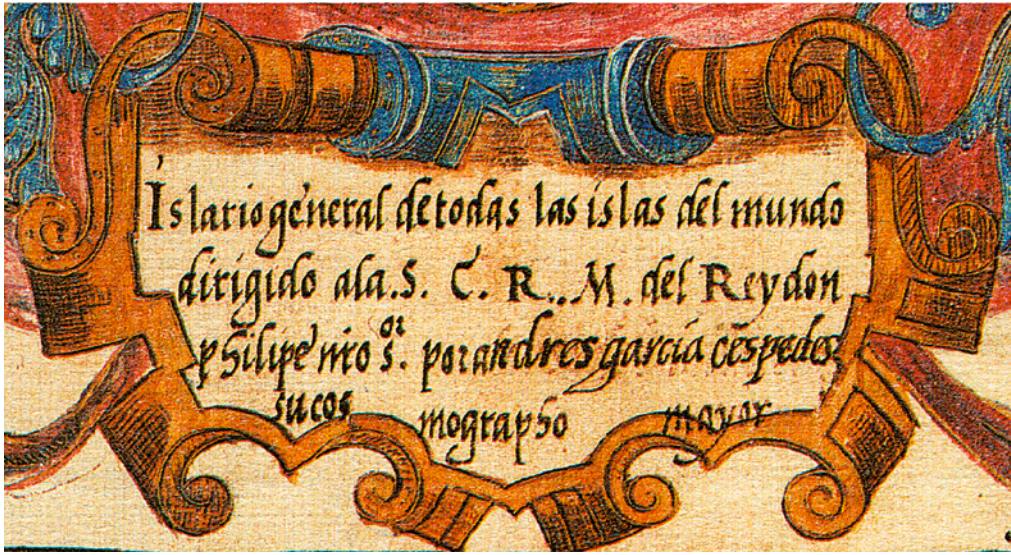 Islario general de todas las islas del mundo
dirigido a la .S. C. R. M. del Rey don
philipe nro s.or por andres garcia cespedes
su cosmographo mayor